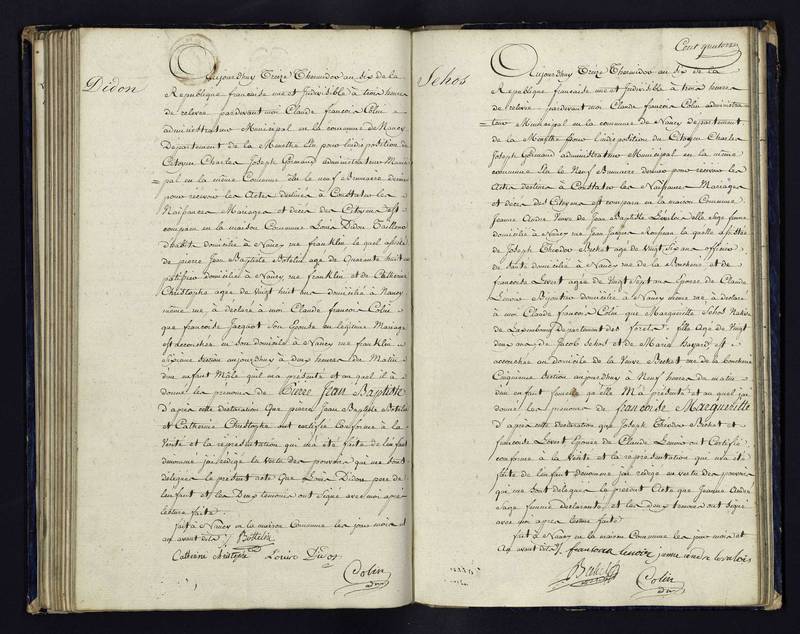 Didon
Aujourdhuy Treize Thermidor an Six de la
Republique francaise une et Indivisible à trois heures
de relevée pardevant moi Claude francois Colin
administrateur Municipal en la commune de Nancy
Departement de la Meurthe Elu pour lindisposition du
Citoyen Charles Joseph Germand administrateur Munici
pal en la même Commune Elu le neuf Brumaire dernier
pour recevoir les Actes destinés à Constater les
Naissances Mariages et décès des Citoyens Est
comparu en la maison Commune Louis Didon Tailleur
d'habits domicilié à Nancy rue franklin le quel assisté
de pierre Jean Baptiste Botelin agé de Quarante huit ans
domicilié à Nancy rue franklin et de Catherine
Christophe agée de Vingt huit ans domiciliée à Nancy
même rue, a déclaré à moi Claude francois Colin
que francoise Jacquot Son Epouse en legitime Mariage
est accouchée en Son domicile à Nancy rue franklin
Sixieme Section aujourdhuy à deux heures du Matin
dun enfant Mâle quil ma présenté et au quel il a
donné les prenoms de Pierre Jean Baptiste
d'après cette déclaration que pierre Jean Baptiste Botelin
et Catherine Christophe ont certifié Conforme à la
Verité et la représentation qui ma été faite de lenfant
denommé jai redigé en Vertu des pouvoirs qui me Sont
delegués le présent acte Que Louis Didon pere de
lenfant et les Deux temoins ont Signé avec moi après
lecture faite.
fait à Nancy en la maison Commune les jour mois et
an avant dits /.
Catherine Christophe Louis Didon
Colin
adm
Cent quatorze
Sehos
Aujourdhuy Treize Thermidor an Six de la
Republique francaise une et Indivisible à trois heures
de relevée pardevant moi Claude francois Colin administra
teur Municipal en la commune de Nancy Departement
de la Meurthe pour lindisposition du Citoyen Charles
Joseph Germand administrateur Municipal en la même
commune Elu le Neuf Brumaire dernier pour recevoir les
Actes destinés à Constater les Naissances Mariages
et décès des Citoyens est comparu en la maison Commune
Jeanne André Veuve de Jean Baptiste Sage femme
domiciliée à Nancy rue Jean Jacques Rousseau la quelle assistée
de Joseph Théodore Becket agé de Vingt Six ans officier
de Santé domicilié à Nancy rue de la Boucherie et de
francoise agée de Vingt Sept ans Epouse de Claude
Lenoir Bijoutier domiciliée à Nancy même rue a déclaré
à moi Claude francois Colin que Marguerite Sehos Native
de Luxembourg Departement des forets fille Agée de Vingt
deux ans de Jacob Sehos et de Maria est
accouchée au domicile de la Veuve Becket rue de la Boucherie
Cinquieme Section aujourdhuy à Neuf heures du matin
dun enfant femelle qu'elle M'a présenté et au quel jai
donné les prenoms de francoise Marguerite
d'après cette déclaration que Joseph Théodore Becket et
francoise Epouse de Claude Lenoir ont Certifié
conforme à la Verité et la représentation qui ma été
faite de lenfant Denommé jai redigé en vertu des pouvoirs
qui me Sont delegués le présent Acte que Jeanne André
Sage femme declarante et les deux temoins ont Signé
avec moi après lecture faite
fait à Nancy en la maison Commune les jour mois et
an avant dits /. francoise lenoir jeanne andre
Becket
Colin
adm